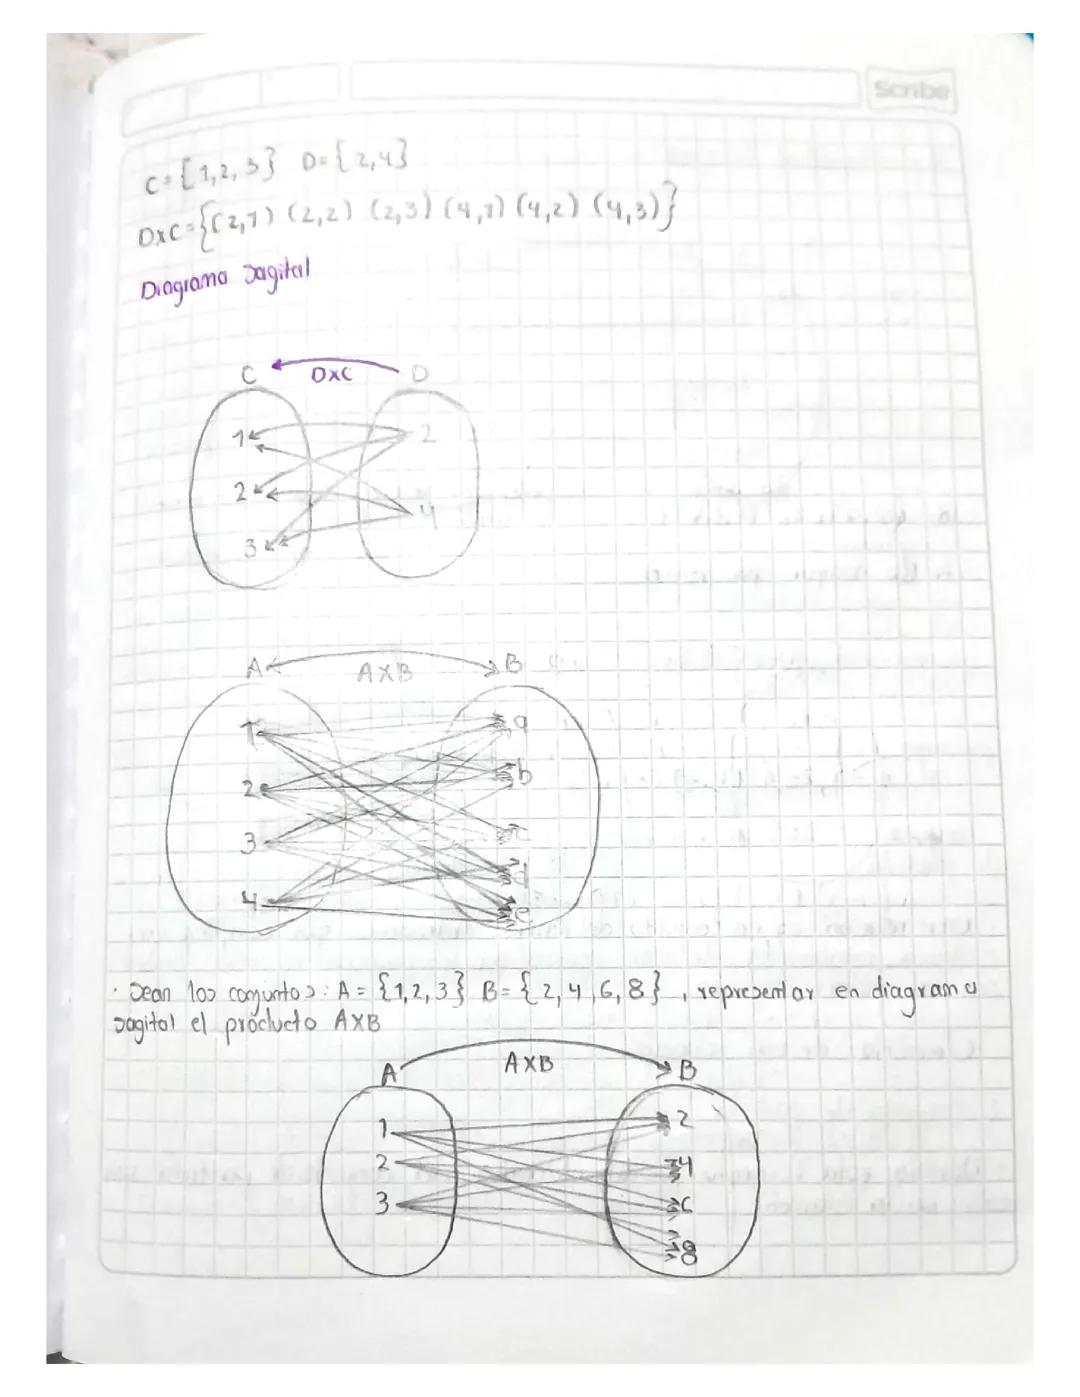 Scribe
C={1,2,3} D={2,4}
DxC={(2,1) (2,2) (2,3) (4,1) (4,2) (4,3)}
Diagrama Sagital
C DxC D
1 2
2
4
3
A AXB B
1 a
2 b
3 c
4 d
e
· Sean los conjuntos: A={1,2,3} B={2,4,6,8}, representar en diagrama
sagital el producto AXB
A AXB B
1 2
2 4
3 6
8